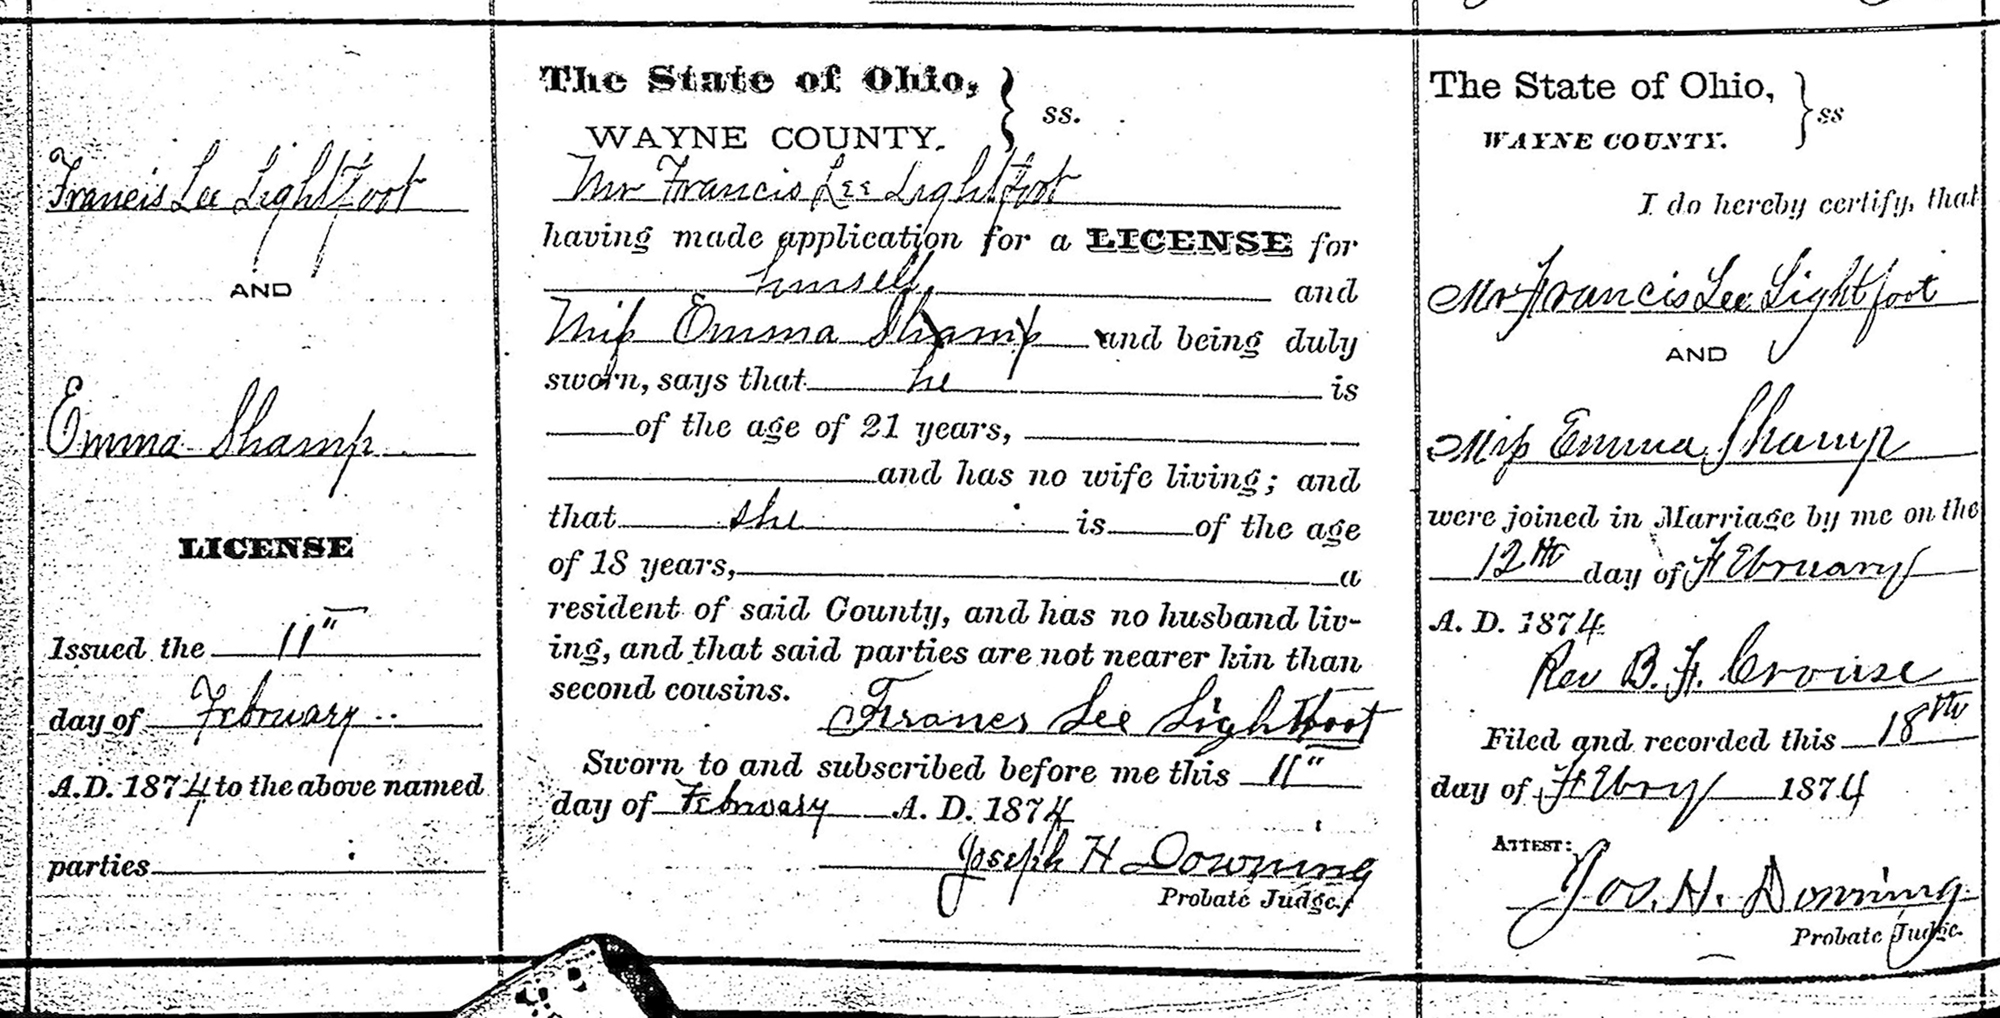 Francis Lee Lightfoot
AND
Emma Shamp
LICENSE
Issued the 11"
day of February
A.D. 1874 to the above named
parties
The State of Ohio,
WAYNE COUNTY. } ss.
Mr Francis Lee Lightfoot
having made application for a LICENSE for
himself and
Miss Emma Shamp and being duly
sworn, says that he is
of the age of 21 years,
and has no wife living; and
that she is of the age
of 18 years, a
resident of said County, and has no husband liv-
ing, and that said parties are not nearer kin than
second cousins.
Frances Lee Lightfoot
Sworn to and subscribed before me this 11"
day of February A. D. 1874
Joseph H Downing
Probate Judge.
The State of Ohio,
WAYNE COUNTY. } ss
I do hereby certify, that
Mr Francis Lee Lightfoot
AND
Miss Emma Shamp
were joined in Marriage by me on the
12th day of February
A. D. 1874
Rev B. F. Crouse
Filed and recorded this 18th
day of Febry 1874
ATTEST:
Jos. H. Downing
Probate Judge.